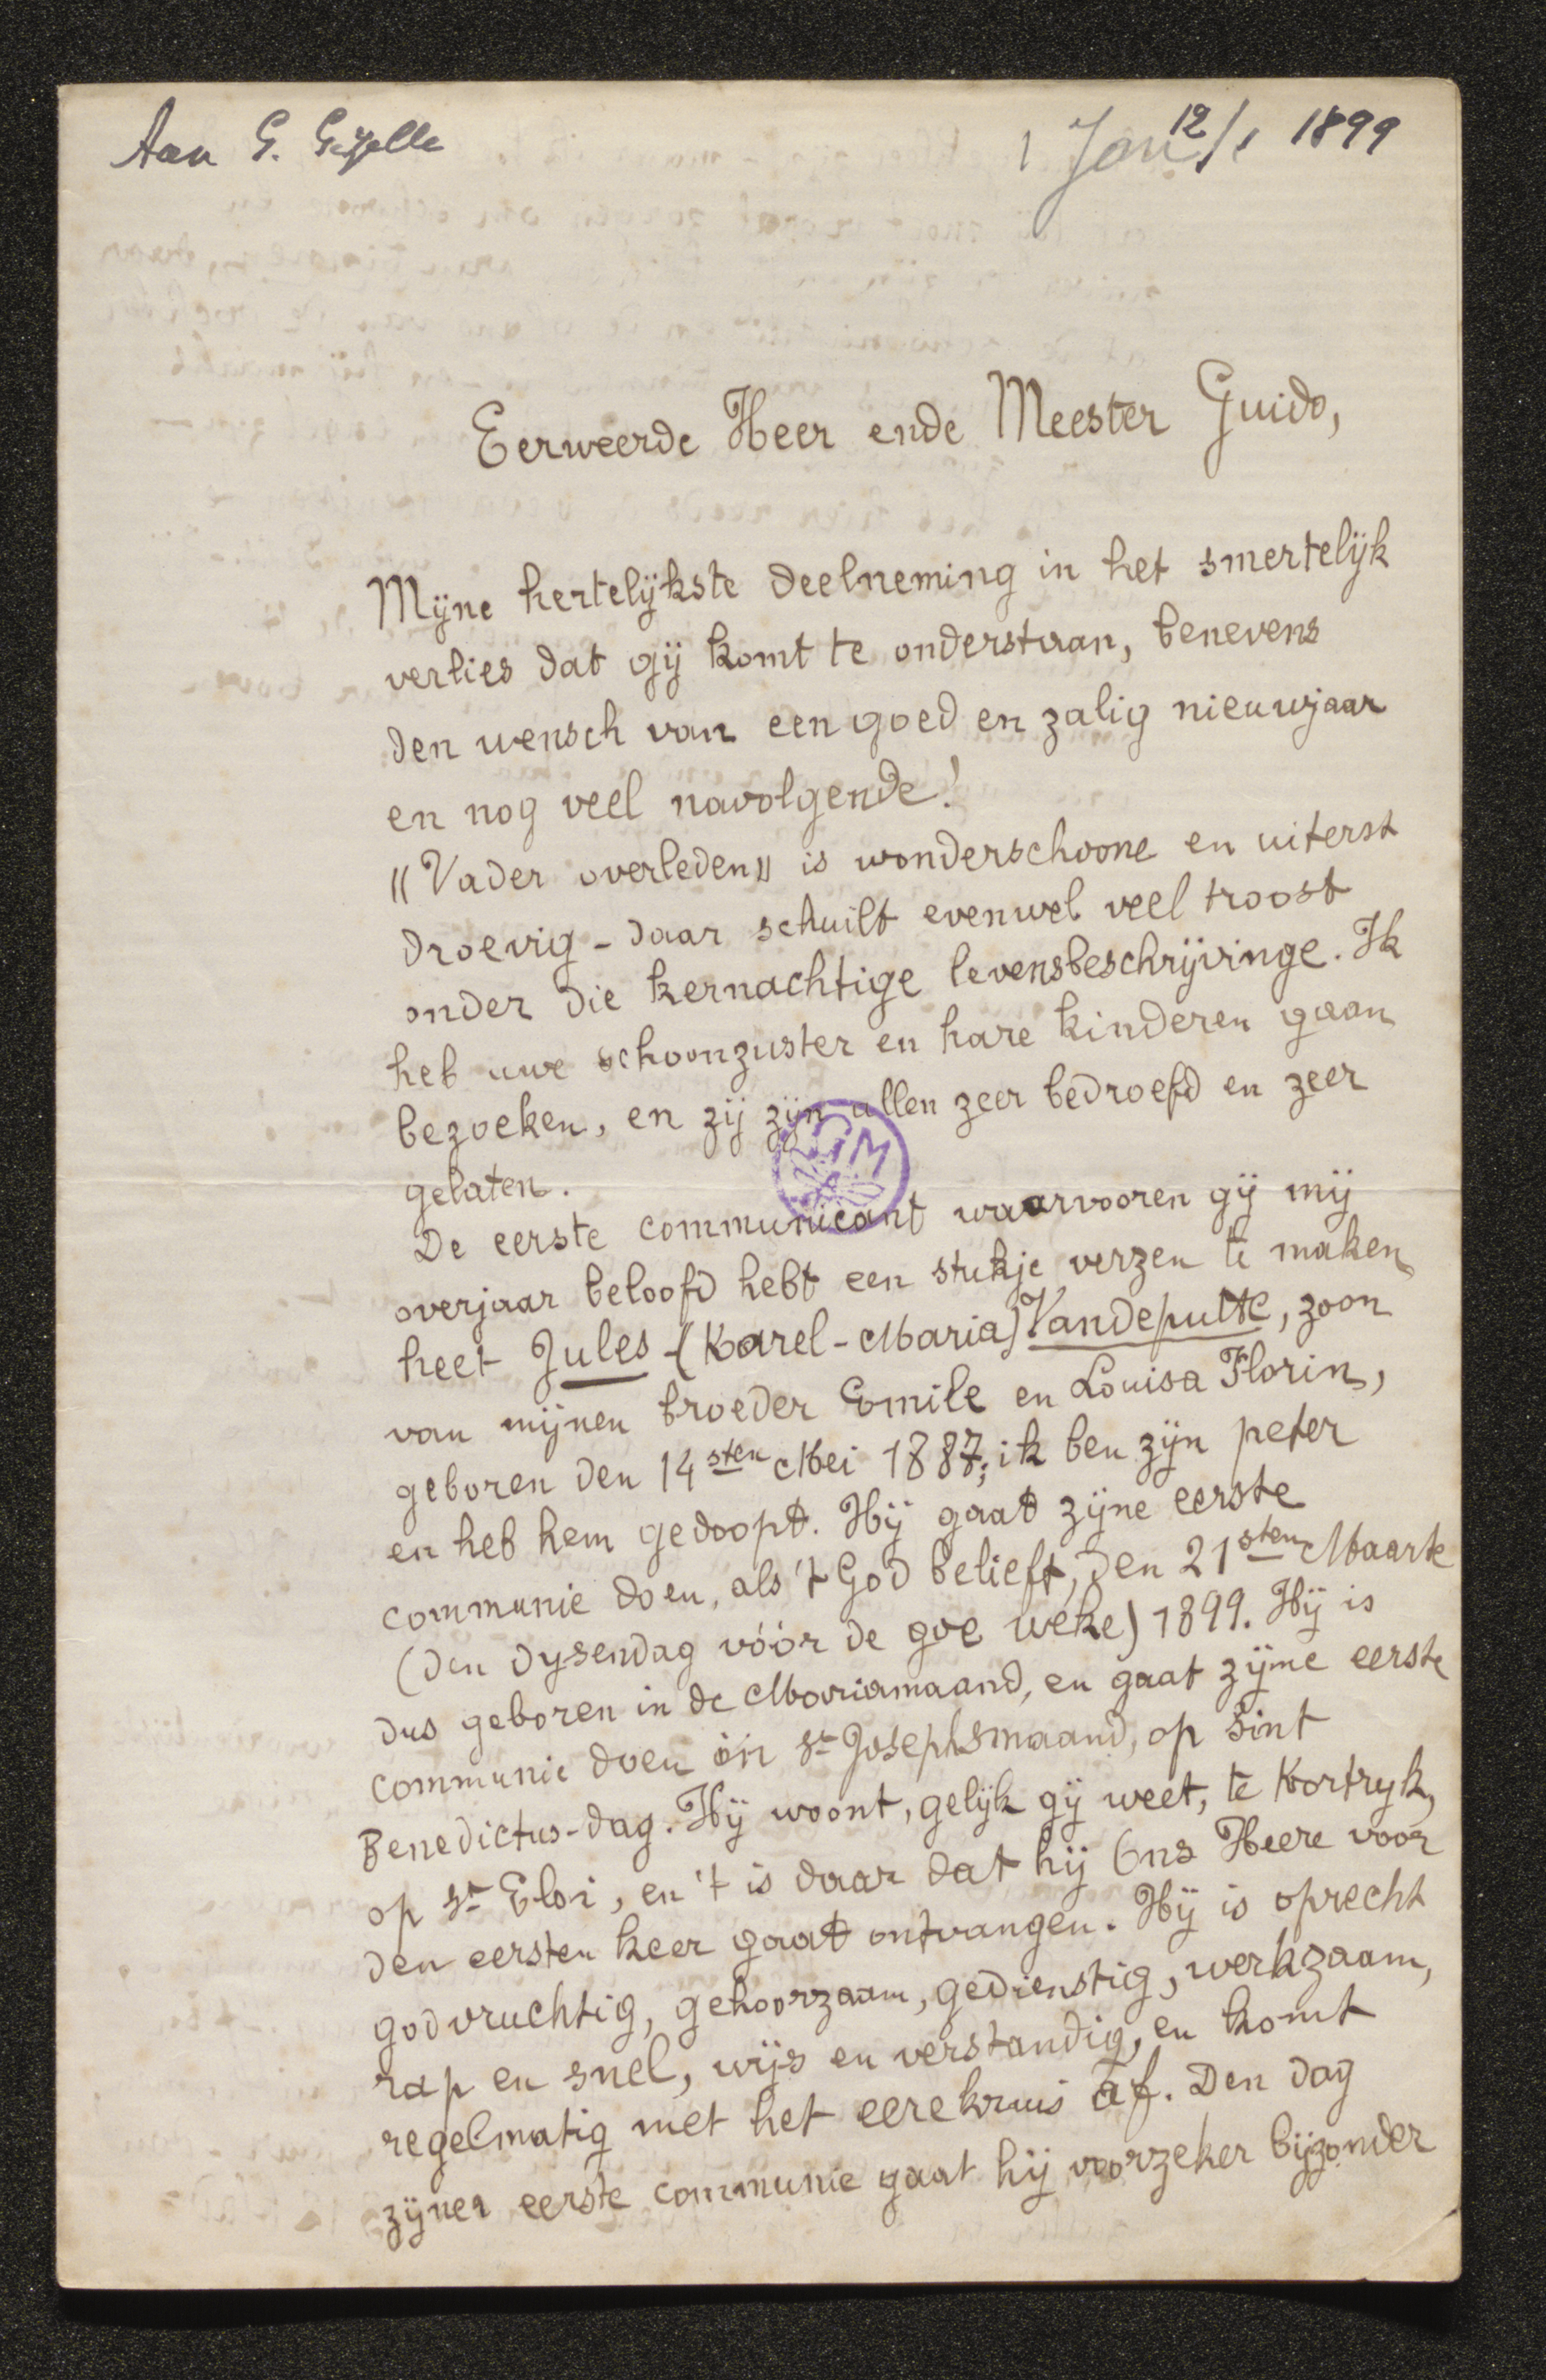 Aan G. Gezelle
1 Jan 12/1 1899
Eerweerde Heer ende Meester Guido,
Mijne hertelijkste deelneming in het smertelijk
verlies dat gij komt te onderstaan, benevens
den wensch van een goed en zalig nieuwjaar
en nog veel navolgende!
"Vader overleden" is wonderschoone en uiterst
droevig - daar schuilt evenwel veel troost
onder die kernachtige levensbeschrijvinge. Ik
heb uwe schoonzuster en hare kinderen gaan
bezoeken, en zij zijn allen zeer bedroefd en zeer
gelaten.
GM
De eerste communicant waarvooren gij mij
overjaar beloofd hebt een stukje verzen te maken
heet Jules-(Karel-Maria) Vandeputte, zoon
van mijnen broeder Emile en Louisa Florin,
geboren den 14sten Mei 1887; ik ben zijn peter
en heb hem gedoopt. Hij gaat zijne eerste
communie doen, als 't God belieft, den 21sten Maarte
(den dysendag vóór de goe weke) 1899. Hij is
dus geboren in de Mariamaand, en gaat zijne eerste
communie doen in St Josephsmaand, op Sint
Benedictus-dag. Hij woont, gelijk gij weet, te Kortryk,
op St Eloi, en 't is daar dat hij Ons Heere voor
den eersten keer gaat ontvangen. Hij is oprecht
godvruchtig, gehoorzaam, gedienstig, werkzaam,
rap en snel, wijs en verstandig, en komt
regelmatig met het eerekruis af. Den dag
zijner eerste communie gaat hij voorzeker bijzonder